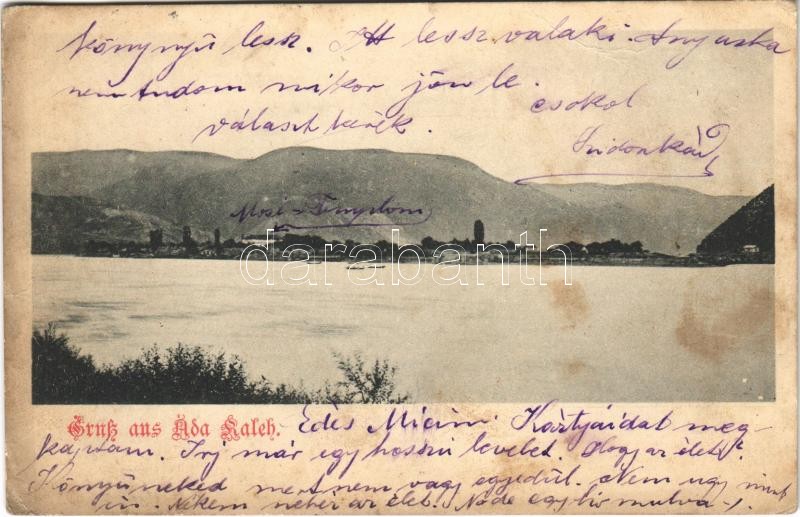 könynyű lesz. Itt lessz valaki. Anyuska
nem tudom mikor jön le.
csokol
választ kérek.
Sidonkád
Mosé - Templom
darabanth
Gruß aus Ada Kaleh.
Édes Miczim! Kártyáidat meg-
kaptam. Irj már egy hosszú levelet. Hogy az élet?
Könyü neked mert nem vagy egyedül. Nem ugy mint
én. Nekem nehéz az élet. No de egy hó mulva